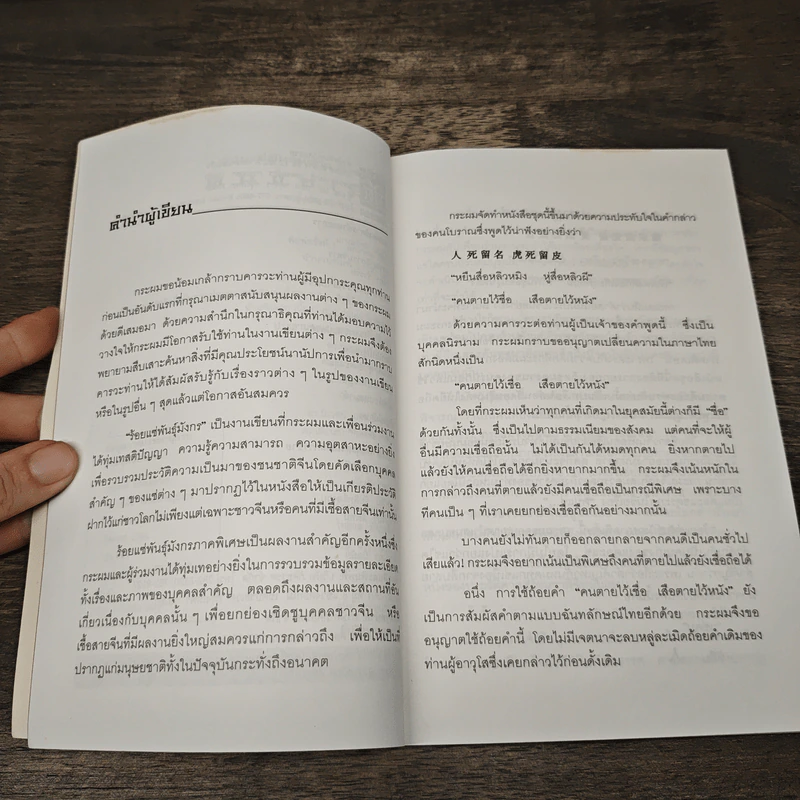 คำนำผู้เขียน
กระผมขอน้อมเกล้ากราบคารวะท่านผู้มีอุปการะคุณทุกท่าน
ก่อนเป็นอันดับแรกที่กรุณาเมตตาสนับสนุนผลงานต่าง ๆ ของกระผม
ด้วยดีเสมอมา ด้วยความสำนึกในกรุณาธิคุณที่ท่านได้มอบความไว้
วางใจให้กระผมมีโอกาสรับใช้ท่านในงานเขียนต่าง ๆ กระผมจึงต้อง
พยายามสืบเสาะค้นหาสิ่งที่มีคุณประโยชน์นานัปการเพื่อนำมากราบ
คารวะท่านให้ได้สัมผัสรับรู้กับเรื่องราวต่าง ๆ ในรูปของงานเขียน
หรือในรูปอื่น ๆ สุดแล้วแต่โอกาสอันสมควร
"ร้อยแซ่พันธุ์มังกร" เป็นงานเขียนที่กระผมและเพื่อนร่วมงาน
ได้ทุ่มเทสติปัญญา ความรู้ความสามารถ ความอุตสาหะอย่างยิ่ง
เพื่อรวบรวมประวัติความเป็นมาของชนชาติจีนโดยคัดเลือกบุคคล
สำคัญ ๆ ของแซ่ต่าง ๆ มาปรากฏไว้ในหนังสือให้เป็นเกียรติประวัติ
ฝากไว้แก่ชาวโลกไม่เพียงแต่เฉพาะชาวจีนหรือคนที่มีเชื้อสายจีนเท่านั้น
ร้อยแซ่พันธุ์มังกรภาคพิเศษเป็นผลงานสำคัญอีกครั้งหนึ่งซึ่ง
กระผมและผู้ร่วมงานได้ทุ่มเทอย่างยิ่งในการรวบรวมข้อมูลรายละเอียด
ทั้งเรื่องและภาพของบุคคลสำคัญ ตลอดถึงผลงานและสถานที่อัน
เกี่ยวเนื่องกับบุคคลนั้น ๆ เพื่อยกย่องเชิดชูบุคคลชาวจีน หรือ
เชื้อสายจีนที่มีผลงานยิ่งใหญ่สมควรแก่การกล่าวถึง เพื่อให้เป็นที่
ปรากฏแก่มนุษยชาติทั้งในปัจจุบันกระทั่งถึงอนาคต
กระผมจัดทำหนังสือชุดนี้ขึ้นมาด้วยความประทับใจในคำกล่าว
ของคนโบราณซึ่งพูดไว้น่าฟังอย่างยิ่งว่า
人死留名 虎死留皮
"หยินสื่อหลิวหมิง หู่สื่อหลิวผี"
"คนตายไว้ชื่อ เสือตายไว้หนัง"
ด้วยความคารวะต่อท่านผู้เป็นเจ้าของคำพูดนี้ ซึ่งเป็น
บุคคลนิรนาม กระผมกราบขออนุญาตเปลี่ยนความในภาษาไทย
สักนิดหนึ่งเป็น
"คนตายไว้เชื่อ เสือตายไว้หนัง"
โดยที่กระผมเห็นว่าทุกคนที่เกิดมาในยุคสมัยนี้ต่างก็มี "ชื่อ"
ด้วยกันทั้งนั้น ซึ่งเป็นไปตามธรรมเนียมของสังคม แต่คนที่จะให้ผู้
อื่นมีความเชื่อถือนั้น ไม่ได้เป็นกันได้หมดทุกคน ยิ่งหากตายไป
แล้วยังให้คนเชื่อถือได้อีกยิ่งหายากมากขึ้น กระผมจึงเน้นหนักใน
การกล่าวถึงคนที่ตายแล้วยังมีคนเชื่อถือเป็นกรณีพิเศษ เพราะบาง
ทีคนเป็น ๆ ที่เราเคยยกย่องเชื่อถือกันอย่างมากนั้น
บางคนยังไม่ทันตายก็ออกลายกลายจากคนดีเป็นคนชั่วไป
เสียแล้ว! กระผมจึงอยากเน้นเป็นพิเศษถึงคนที่ตายไปแล้วยังเชื่อถือได้
อนึ่ง การใช้ถ้อยคำ "คนตายไว้เชื่อ เสือตายไว้หนัง" ยัง
เป็นการสัมผัสคำตามแบบฉันทลักษณ์ไทยอีกด้วย กระผมจึงขอ
อนุญาตใช้ถ้อยคำนี้ โดยไม่มีเจตนาจะลบหลู่ละเมิดถ้อยคำเดิมของ
ท่านผู้อาวุโสซึ่งเคยกล่าวไว้ก่อนดั้งเดิม